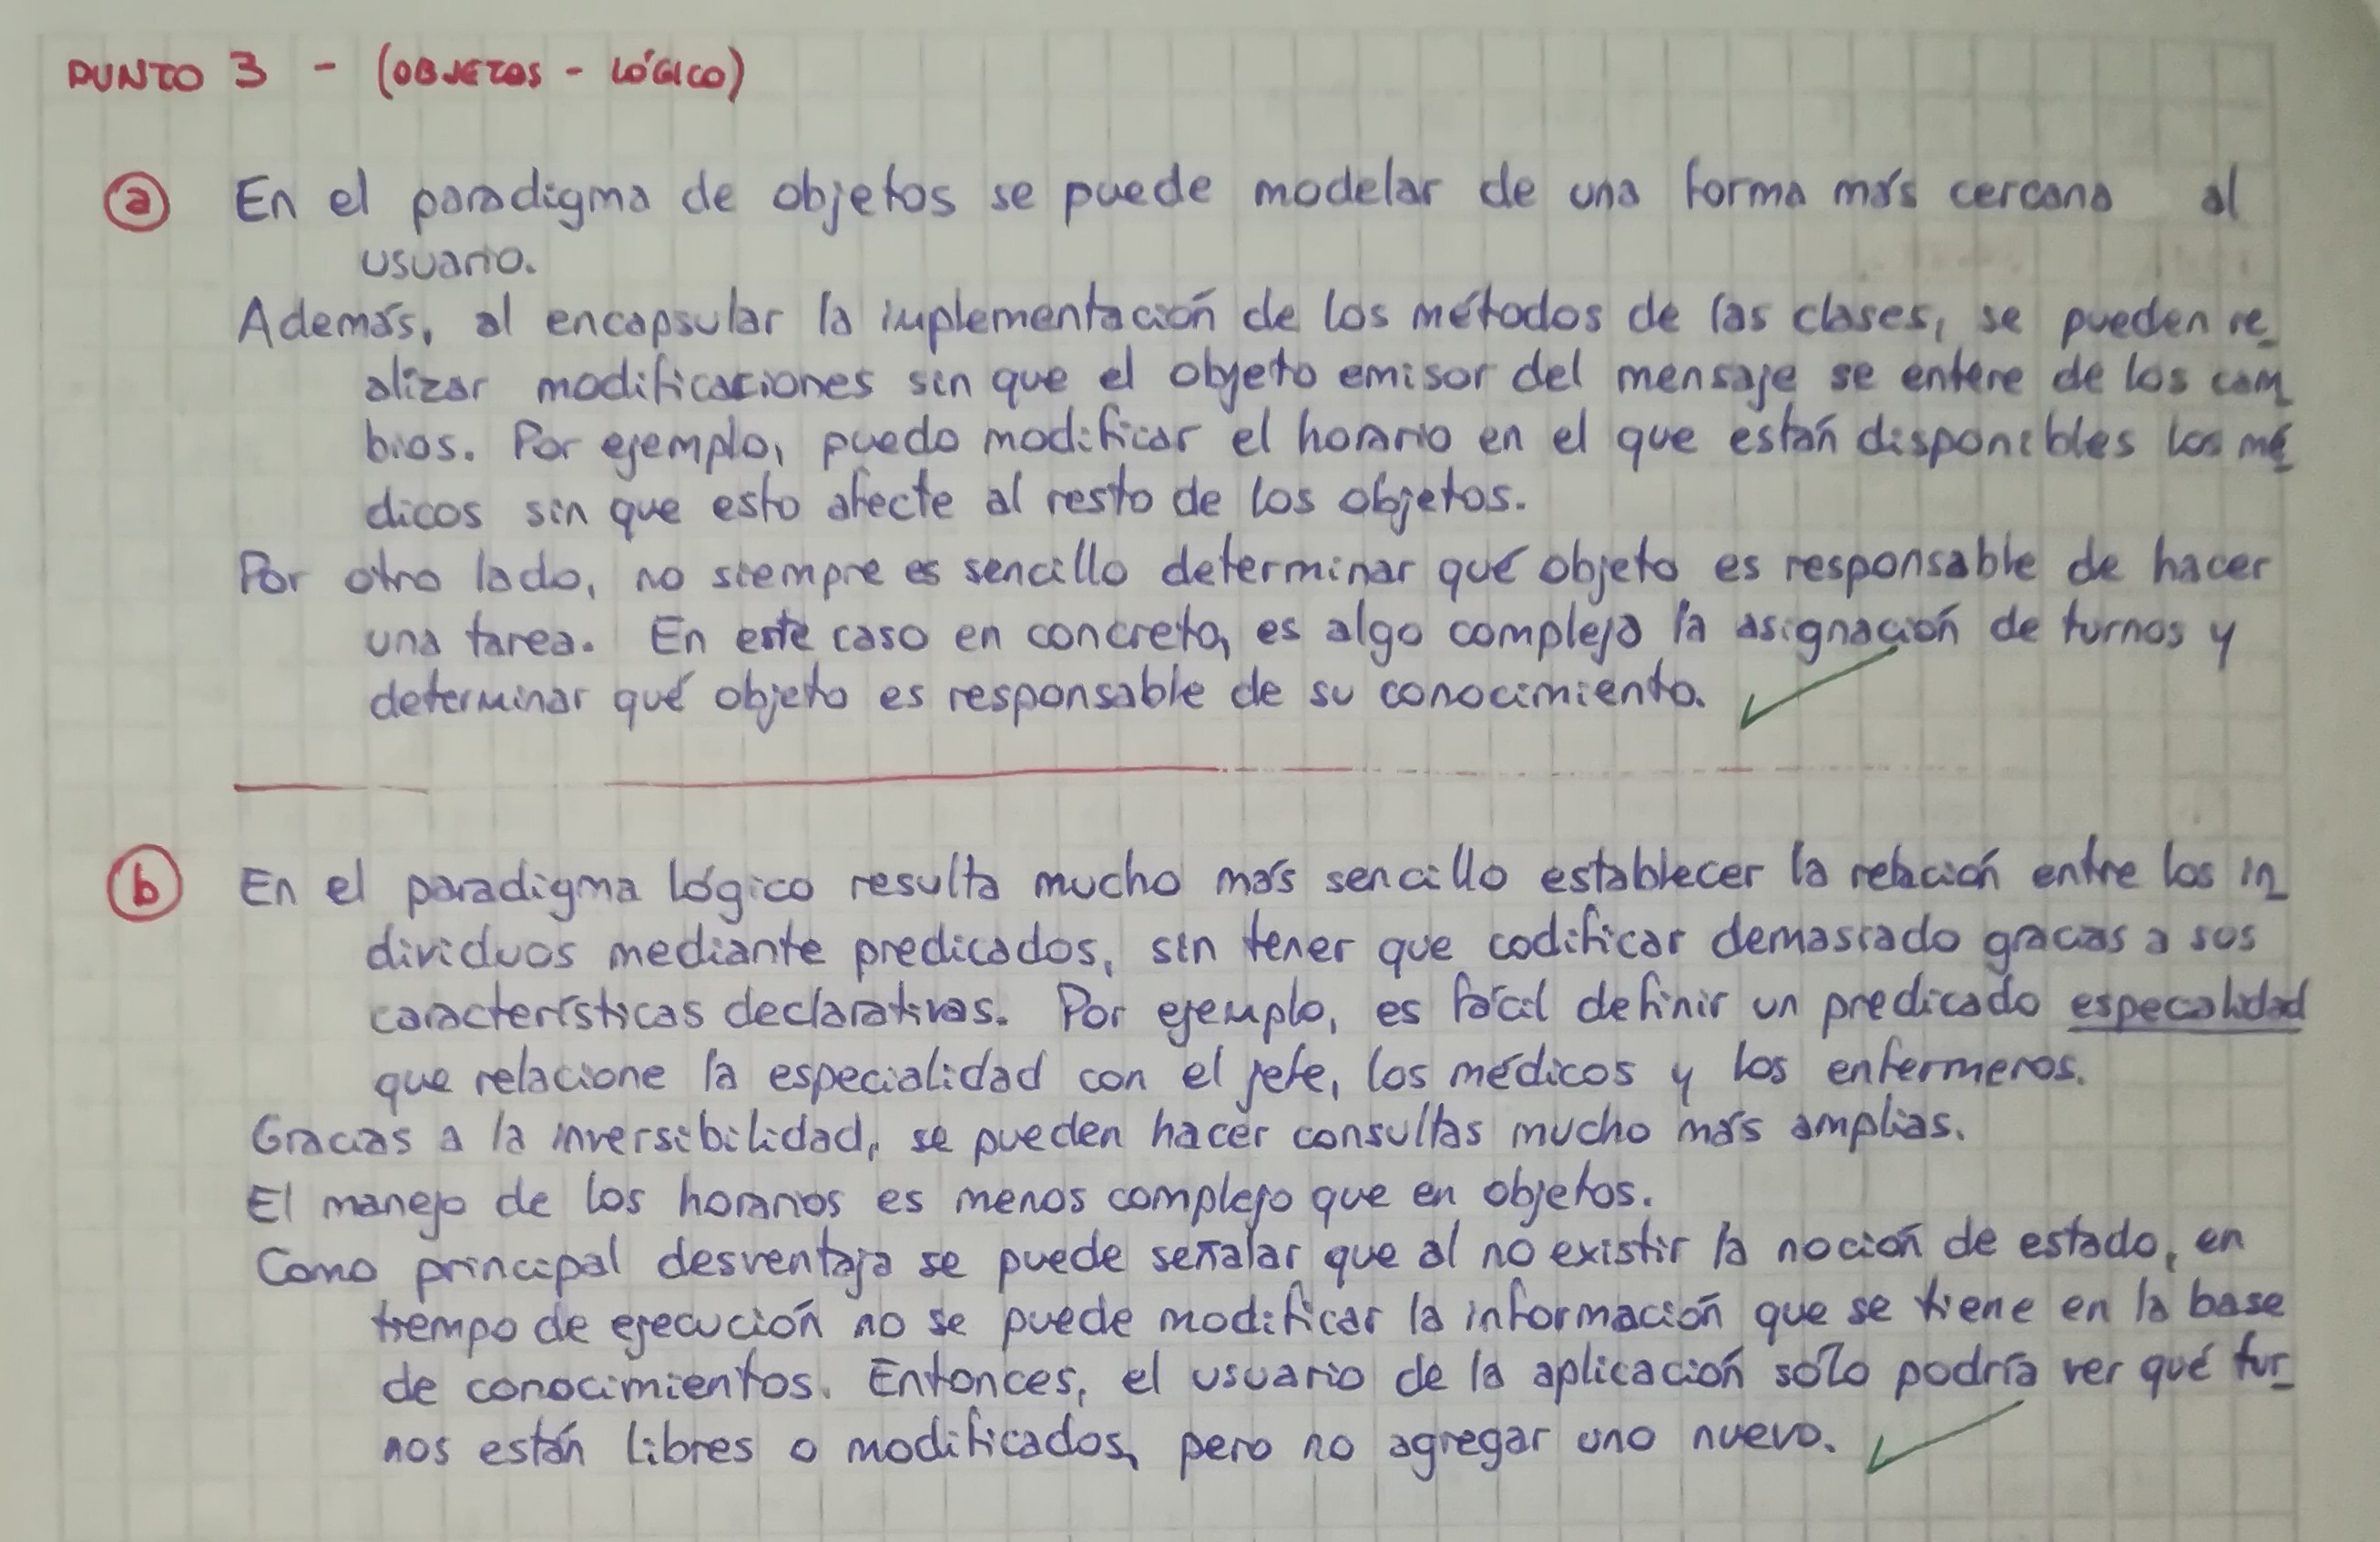 PUNTO 3 - (OBJETOS - LÓGICO)
a En el paradigma de objetos se puede modelar de una forma más cercana al
usuario.
Además, al encapsular la implementación de los métodos de las clases, se pueden re_
alizar modificaciones sin que el objeto emisor del mensaje se entere de los cam_
bios. Por ejemplo, puedo modificar el horario en el que están disponibles los mé_
dicos sin que esto afecte al resto de los objetos.
Por otro lado, no siempre es sencillo determinar qué objeto es responsable de hacer
una tarea. En este caso en concreto, es algo complejo la asignación de turnos y
determinar qué objeto es responsable de su conocimiento.
b En el paradigma lógico resulta mucho más sencillo establecer la relación entre los in_
dividuos mediante predicados, sin tener que codificar demasiado gracias a sus
características declarativas. Por ejemplo, es fácil definir un predicado especalidad
que relacione la especialidad con el jefe, los médicos y los enfermeros.
Gracias a la inversibilidad, se pueden hacer consultas mucho más amplias.
El manejo de los horarios es menos complejo que en objetos.
Como principal desventaja se puede señalar que al no existir la noción de estado, en
tiempo de ejecución no se puede modificar la información que se tiene en la base
de conocimientos. Entonces, el usuario de la aplicación sólo podría ver qué tur_
nos están libres o modificados, pero no agregar uno nuevo.